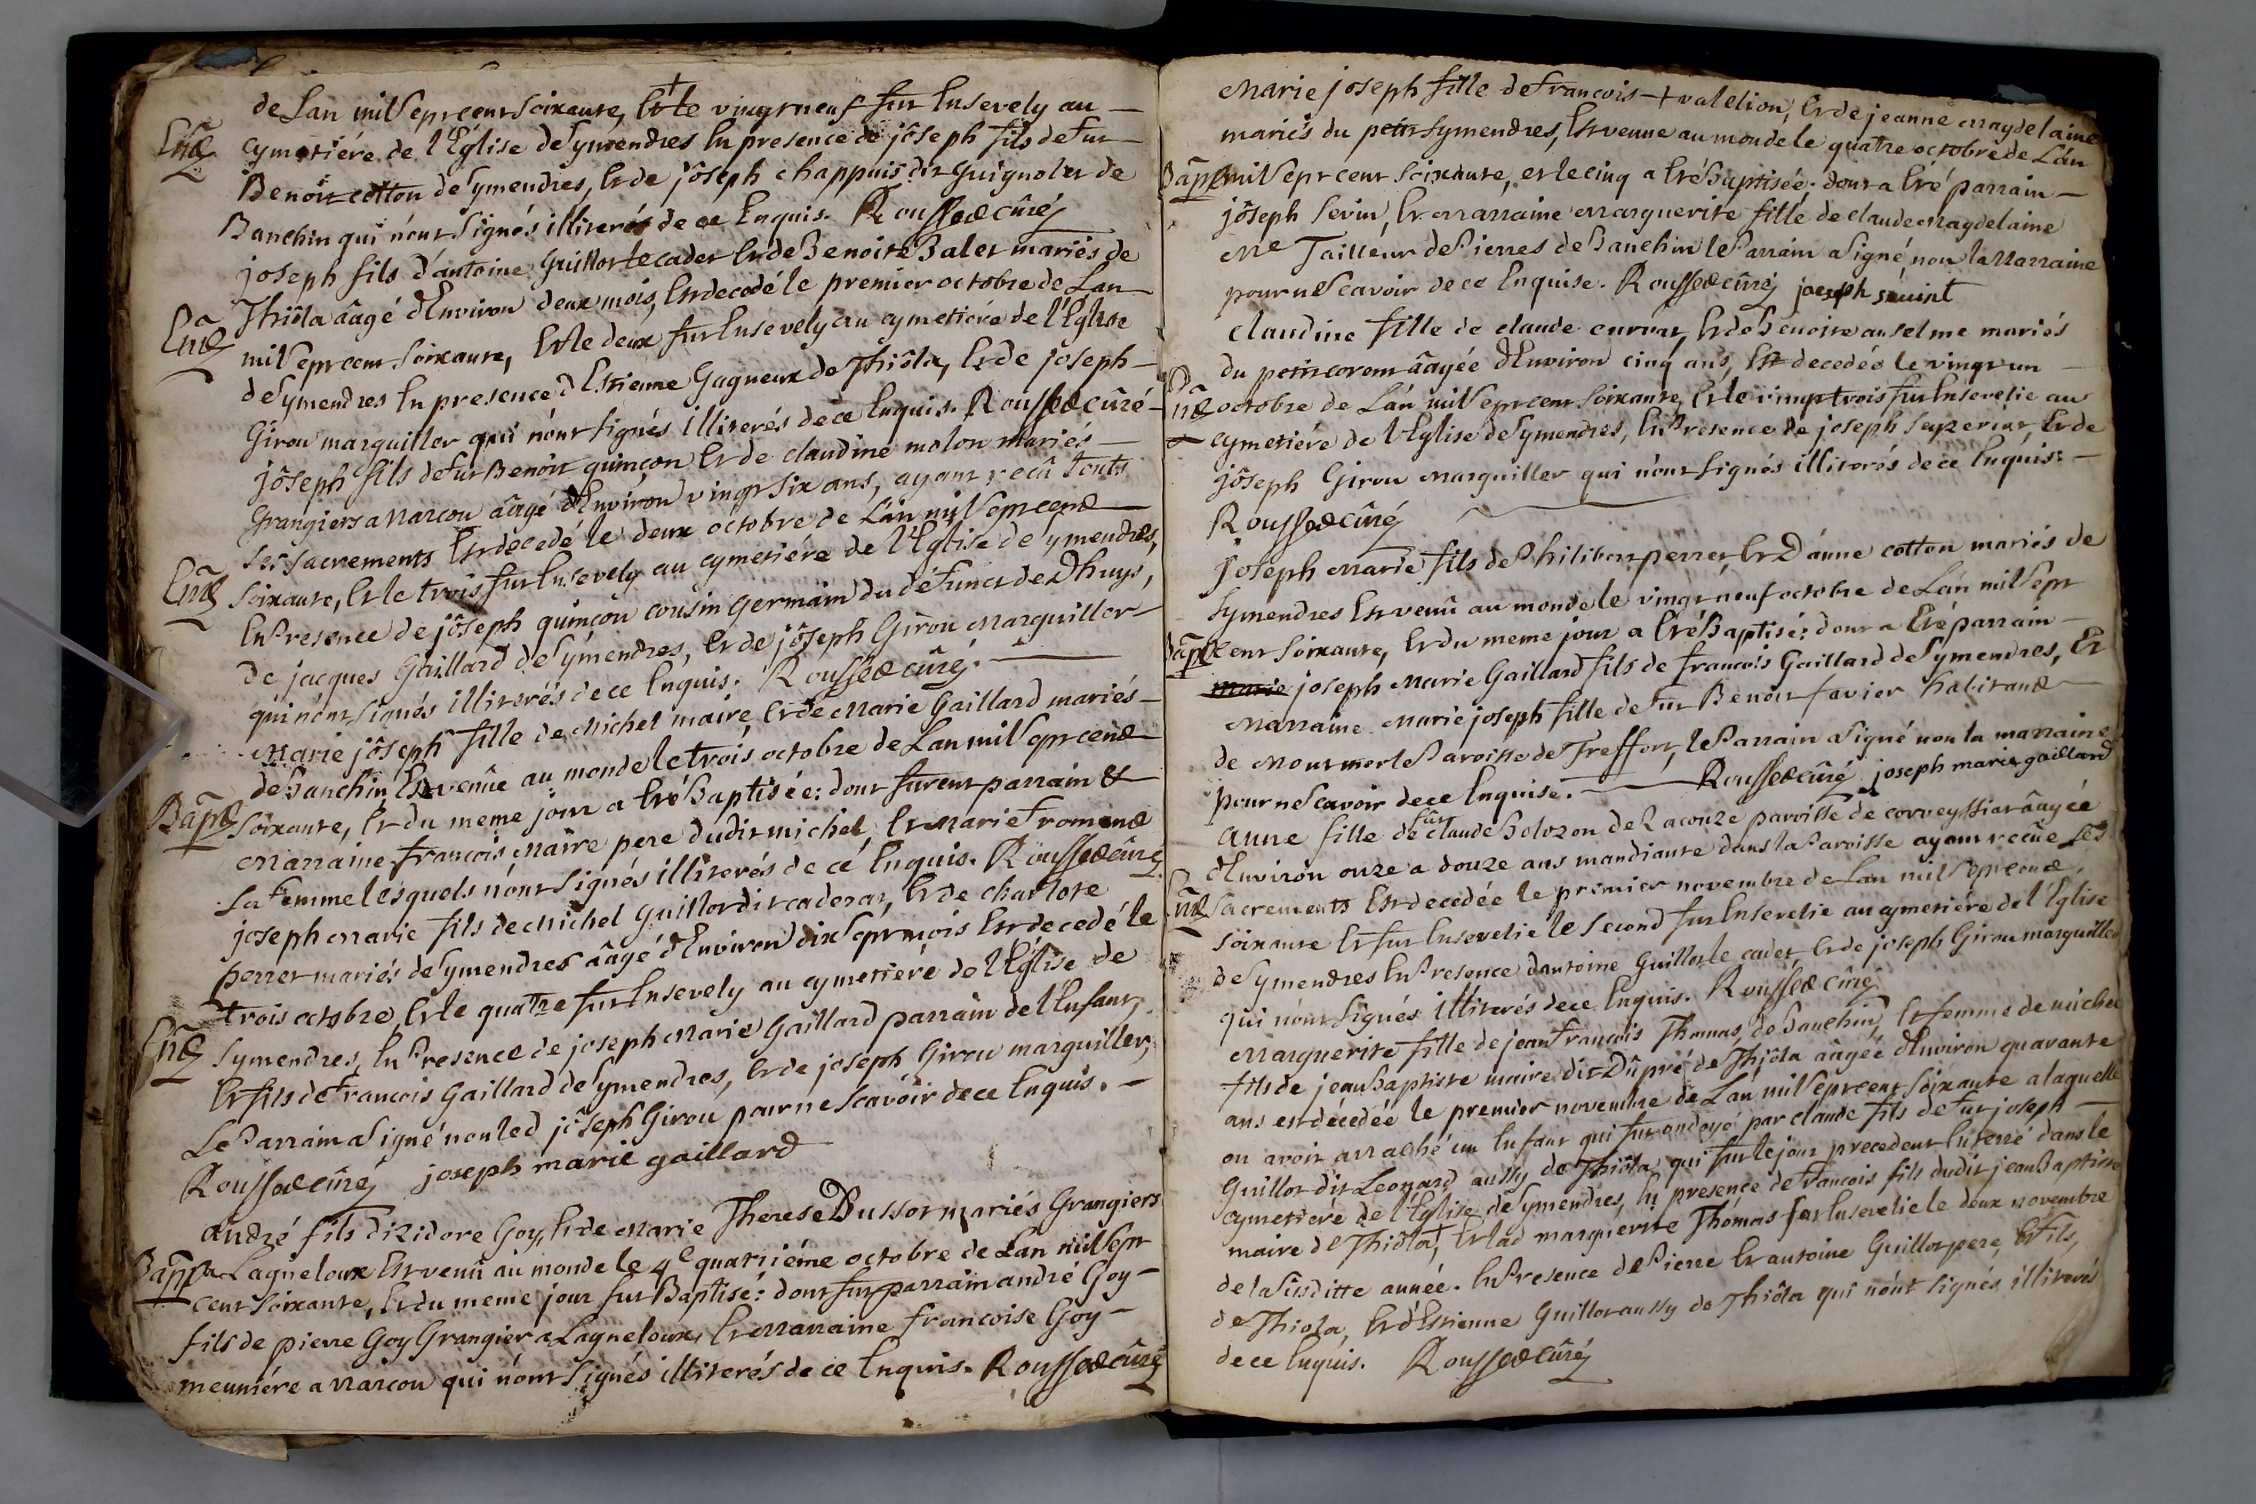 de Lan mil Sept cent Soixante, Et le vingt neuf fut Ensevely au
Ent cymetiére de l'Eglise de Symendres En presence de jôseph fils de fut
Benoit cotton de Symendres, Et de jôseph chappuis dit Guignolet de
Banchin qui n'ont Signés illiterés de ce Enquis. Rousset cûré
joseph fils d'antoine Guillot le cadet Et de Benoite Balet mariés de
Thiôla âagé d'Environ deux mois, Est decedé le premier octobre de Lan
Ent mil Sept cent Soixante, Et le deux fut Ensevely au cymetiére de l'Eglise
de Symendres En presence d'Estienne Gagneux de Thiôla, Et de joseph
Girou marguiller qui n'ont Signés illiterés de ce Enquis. Rousset cûré
jôseph fils de fut Benoit quinçon Et de claudine molon mariés
Grangiers a Narcou âagé d'Environ vingt Six ans, ayant reçû touts
Ses Sacrements Est decedé le deux octobre de L'an mil Sept cent
Ent Soixante, Et le trois fut Ensevely au cymetiére de l'Eglise de Symendres,
En Presence de jôseph quinçon cousin germain du défunct de Dhuys,
de jacques Gaillard de Symendres, Et de jôseph Girou Marguiller
qui n'ont Signés illiterés de ce Enquis. Rousset cûré.
Marie jôseph fille de Michel maire, Et de Marie Gaillard mariés
de Banchin Est venüe au monde le trois octobre de Lan mil Sept cent
Bapt Soixante, Et du meme jour a Eté Baptisée: dont furent parrain &
Marraine francois Maire pere dudit michel, Et Marie froment
Sa femme lesquels n'ont Signés illiterés de ce Enquis. Rousset cûré
joseph Marie fils de Michel Guillot dit caderat, Et de charlote
perret mariés de Symendres âagé d'Environ dix Sept mois Est decedé le
trois octobre, Et le quatre fut Ensevely au cymetiére de l'Eglise de
Ent Symendres, En Presence de joseph Marie Gaillard parrain de l'Enfant,
Et fils de francois Gaillard de Symendres, Et de joseph Girou marguiller,
Le Parrain a Signé non led jôseph Girou pour ne Scavoir de ce Enquis.
Rousset cûré joseph marie gaillard
andré fils d'izidore Goy, Et de Marie Therese Dussor mariés Grangiers
Bapt a Lagneloux Est venû au monde le 4e quatriéme octobre de Lan mil Sept
cent Soixante, Et du meme jour fut Baptisé: dont fut parrain andré Goy
fils de pierre Goy Grangier a Lagneloux, Et Marraine francoise Goy
meuniére a Narcou qui n'ont Signés illiterés de ce Enquis. Rousset cûré
Marie joseph fille de francois + valelion, Et de jeanne Magdelaine
mariés du petit Symendres, Est venue au monde le quatre octobre de L'an
Bapt mil Sept cent Soixante, et le cinq a Eté Baptisée: dont a Eté parrain
jôseph Sevin, Et Marraine Marguerite fille de claude Magdelaine
Me Tailleur de Pierres de Banchin le Parrain a Signé, non la Marraine
pour ne Scavoir de ce Enquise. Rousset cûré joseph sevint
claudine fille de claude curvat, Et de Benoite anselme mariés
du petit corent âagée d'Environ cinq ans, Est decedée le vingt un
Ent octobre de L'an mil Sept cent Soixante, Et le vingt trois fut Ensevelie au
cymetiére de l'Eglise de Symendres, En Presence de joseph Et de
jôseph Girou Marguiller qui n'ont Signés illiterés de ce Enquis:
Rousset cûré
joseph Marie fils de Philibert perret, Et D'anne cotton mariés de
Symendres Est venû au monde le vingt neuf octobre de Lan mil Sept
Bapt cent Soixante, Et du meme jour a Eté Baptisé: dont a Eté parrain
marie joseph Marie Gaillard fils de francois Gaillard de Symendres, Et
Marraine Marie joseph fille de fut Benoit favier habitant
de Montmort Paroisse de Treffort, le Parrain a Signé non la marraine
pour ne Scavoir de ce Enquise. Rousset cûré joseph marie gaillard
anne fille de fût claude Bolozon de Racouze paroisse de corveyssiat âagée
d'Environ onze a douze ans mandiante dans la Paroisse ayant reçûe Ses
Ent Sacrements Est decedée le premier novembre de Lan mil Sept cent
Soixante Et fut Ensevelie le Second fut Ensevelie au cymetiére de l'Eglise
de Symendres En Presence d'antoine Guillot le cadet, Et de joseph Girou marguiller
qui n'ont Signés illiterés de ce Enquis. Rousset cûré
Marguerite fille de jean francois Thomas de Banchin, Et femme de michel
fils de jean Baptiste maire dit Dûpré de Thiôla âagée d'Environ quarante
ans est decedée le premier novembre de L'an mil Sept cent Soixante a laquelle
on avoit arraché un Enfant qui fut ondoyé par claude fils de fut joseph
Guillot dit Leonard aussy de Thiôla, qui fut le jour precedent Enterré dans le
cymetiére de l'Eglise de Symendres, En presence de francois fils dudit jean Baptiste
maire de Thiôla, Et lad marguerite Thomas fut Ensevelie le deux novembre
de la Susditte année. En Presence de Pierre Et antoine Guillot pere, Et fils,
de Thiola, Et d'Estienne Guillot aussy de Thiôla qui n'ont Signés illiterés
de ce Enquis. Rousset cûré